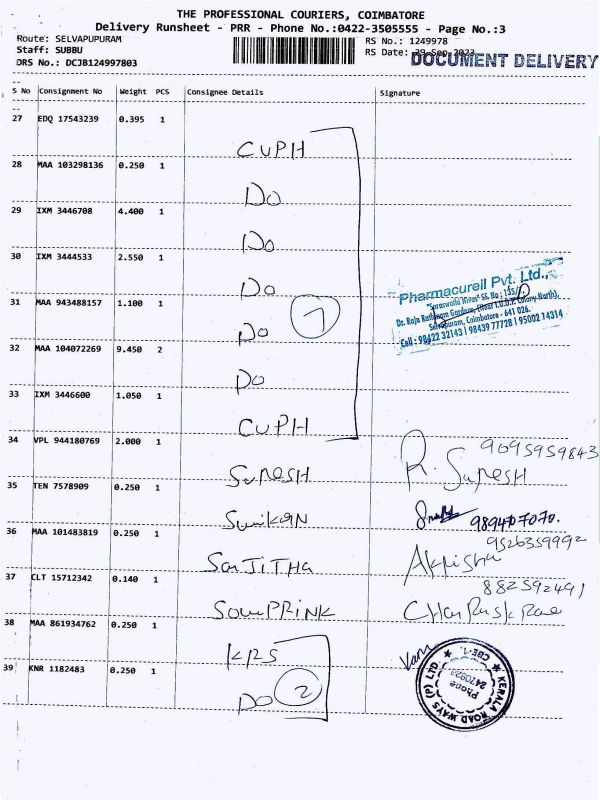 THE PROFESSIONAL COURIERS, COIMBATORE
Delivery Runsheet - PRR - Phone No.:0422-3505555 - Page No.:3
Route: SELVAPUPURAM
RS No.: 1249978
Staff: SUBBU
RS Date: 29-Sep-2023
DOCUMENT DELIVERY
DRS No.: DCJB124997803
S No Consignment No Weight PCS Consignee Details Signature
27 EDQ 17543239 0.395 1
CUPH
28 MAA 103298136 0.250 1
DO
29 IXM 3446708 4.400 1
DO
30 IXM 3444533 2.550 1
DO
31 MAA 943488157 1.100 1
DO
7
Pharmacureil Pvt. Ltd.,
"Saraswathi Nivas" SF. No : 135/
Dr. Raja Rathinam Gardens, (Near I.U.D.P. Colony North),
Selvapuram, Coimbatore - 641 026.
Cell : 98422 32143 | 98439 77728 | 95002 14314
32 MAA 104072269 9.450 2
DO
33 IXM 3446600 1.050 1
CUPH
34 VPL 944180769 2.000 1
SURESH
9695959843
R. SURESH
35 TEN 7578909 0.250 1
989407070.
36 MAA 101483819 0.250 1
SANJITHA
9526359992
37 CLT 15712342 0.140 1
882592491
38 MAA 861934762 0.250 1
KRS
39 KNR 1182483 0.250 1
DO
2
KERALA ROAD WAYS (P) LTD
CBE-1.
Phone